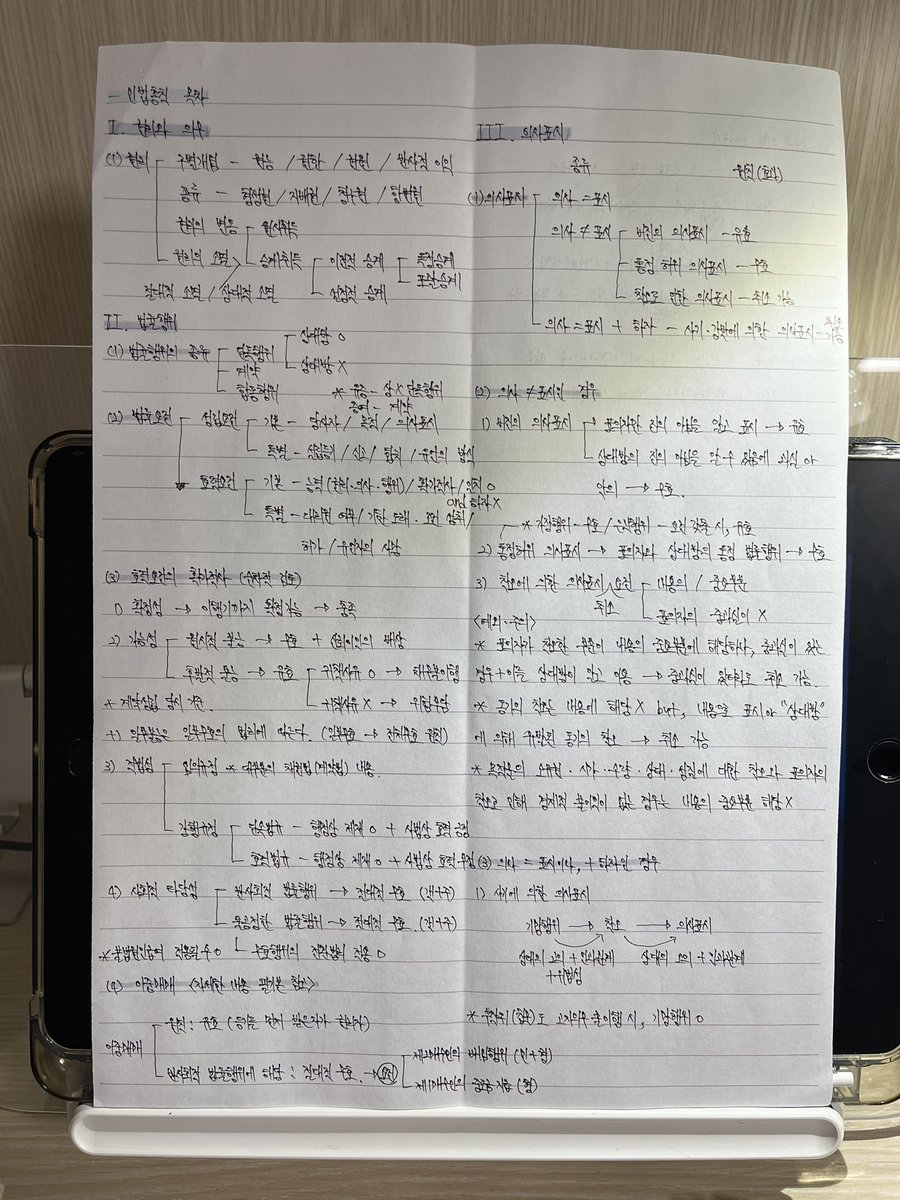 - 민법총칙 목차
I. 권리와 의무
(1) 권리 구별개념 - 권능 / 권한 / 권원 / 반사적 이익
종류 - 형성권 / 지배권 / 청구권 / 항변권
권리의 변동 원시취득
권리의 소멸 승계취득 이전적 승계 특정승계
포괄승계
절대적 소멸 / 상대적 소멸 설정적 승계
II. 법률행위
(1) 법률행위의 종류 단독행위 상대방 O
계약 상대방 X
합동행위 * 유증 - 상X 단독행위
증여 - 계약
(2) 법률요건 성립요건 기본 - 당사자 / 목적 / 의사표시
특별 - / 신고 / 합치 / 유언의 방식
효력요건 기본 - 능력 (권리·의사·행위) / 목적 / 일치 O
하자 X
특별 - 대리권 여부 / 기한 도래·조건 /
허가 / 유언자의 사망
(3) 효력요건의
1) 확정성 → 이행기까지 확정가능 → 충족
2) 가능성 원시적 불능 → 무효 + 신뢰이익의 배상
후발적 불능 → 유효 귀책사유 O → 채무불이행
* 계약성립 당시 기준 귀책사유 X → 위험부담
+) 일부불능은 일부무효의 법리에 따른다. (일부무효 → 전부무효 원칙)
3) 적법성 임의규정 * 대부분의 채권법(계약법) 내용.
강행규정 단속법규 - 행정상 제재 O + 사법상 효력 긍정
효력법규 - 행정상 제재 O + 사법상 효력 부정
4) 사회적 타당성 반사회적 법률행위 → 절대적 무효 (객+주)
불공정한 법률행위 → 절대적 무효. (객+주)
* 불법원인급여 적용 O 무효행위의 전환법리 적용 O
(4) 이중매매 <자세한 내용 필기본 참고>
이중매매 원칙 : 유효 (등기를 먼저 받은자가 권리자)
반사회적 법률행위에 해당 : 절대적 무효. → 요건 제2매수인의 배임행위 (인+결)
제1매수인의 (형)
III. 의사표시
종류 원칙(효과)
(1) 의사표시 의사 = 표시
의사 ≠ 표시 비진의 의사표시 - 유효
통정 허위 의사표시 - 무효
착오로 인한 의사표시 - 취소 가능
의사 = 표시 + 하자 - 사기·강박에 의한 의사표시 - 취소 가능
(2) 의사 ≠ 표시인 경우
1) 비진의 의사표시 표의자만 진의 아님을 알고 표시 → 유효
상대방의 진의 아님을 알 수 있음에 과실 or
악의 → 무효.
* 가장행위 - 무효 / 은닉행위 - 요건 갖출 시, 유효
2) 통정허위 의사표시 → 표의자와 상대방의 통정 법률행위 → 무효
3) 착오에 의한 의사표시 취소 요건 내용의 / 중요부분
표의자의 중과실이 X
<예외·주의>
* 표의자가 착오한 부분이 내용의 중요부분에 해당하나, 중과실이 있는
경우 + 이를 상대방이 알고 이용 → 중과실이 있더라도 취소 가능.
* 동기의 착오는 내용에 해당 X but, 내용으로 표시 or "상대방"
에 의해 유발된 동기의 착오 → 취소 가능
* 목적물의 소유권·시가·수량·상태·성질에 대한 착오와 표의자의
착오로 인해 경제적 불이익이 없는 경우는 내용의 중요부분 해당 X
(3) 의사 = 표시이나, + 하자인 경우
1) 사기에 의한 의사표시
기망행위 → 착오 → 의사표시
상대의 고의 + 인과관계 상대의 고의 + 인과관계
+ 위법성
* 부작위(침묵)도 고지의무 불이행 시, 기망행위 O